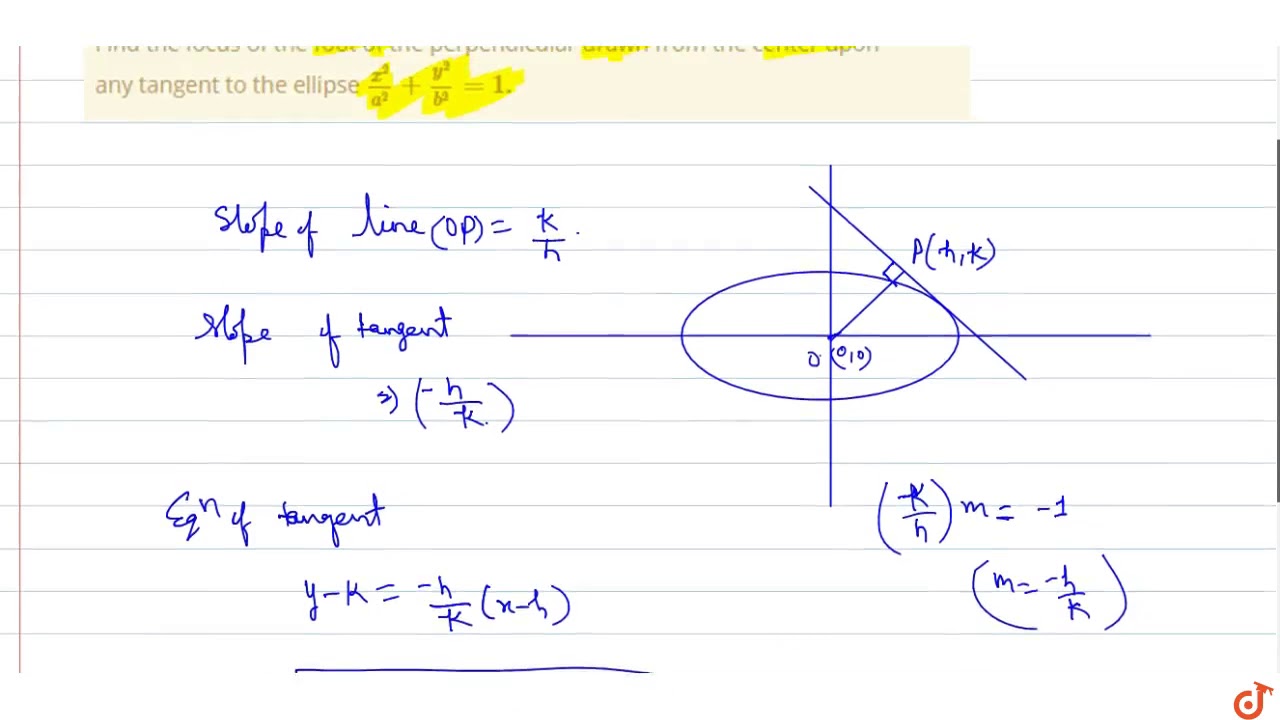 Find the locus of the foot of the perpendicular drawn from the center upon
any tangent to the ellipse x²/a² + y²/b² = 1.
Slope of line (OP) = k/h .
P(h,k)
Slope of tangent
O (0,0)
⇒ (-h/k.)
Eqⁿ of tangent
(k/h) m = -1
y-k = -h/k (x-h)
(m = -h/k)